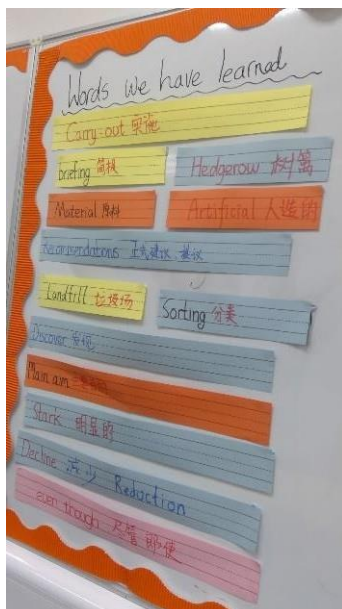 Words we have learned
Carry-out 实施
briefing 简报
Hedgerow 树篱
Material 原料
Artificial 人造的
Recommendations 正式建议, 提议
Landfill 垃圾场
Sorting 分类
Discover 发现
Main aim
Stark 明显的
Decline 减少 Reduction
even though 尽管 即使